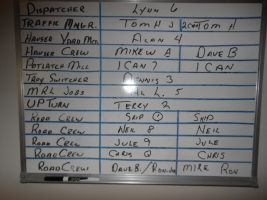 DISPATCHER LYNN 6
TRAFFIC MNGR. TOM H 5 TOM H
HAUSER YARD MGR. ALAN 4
HAUSER CREW MIKE W DAVE B
POTLATCH MILL I CAN 7 I CAN
TROY SWITCHER DENNIS 3
MRL JOBS L. 5
UPTURN TERRY 2
ROAD CREW SKIP SKIP
ROAD CREW NEIL 8 NEIL
ROAD CREW JULE 9 JULE
ROAD CREW CHRIS CHRIS
ROAD CREW DAVE B / MIKE RON